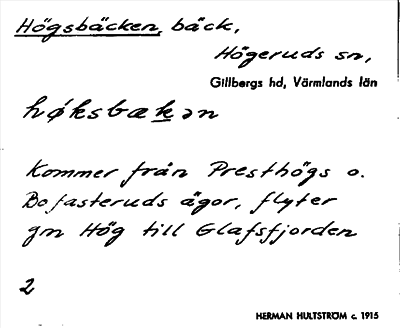 Högsbäcken, bäck,
Högeruds sn,
Gillbergs hd, Värmlands län
høksbækən
Kommer från Presthögs o.
Bofasteruds ägor, flyter
gm Hög till Glafsfjorden
2
HERMAN HULTSTRÖM c. 1915